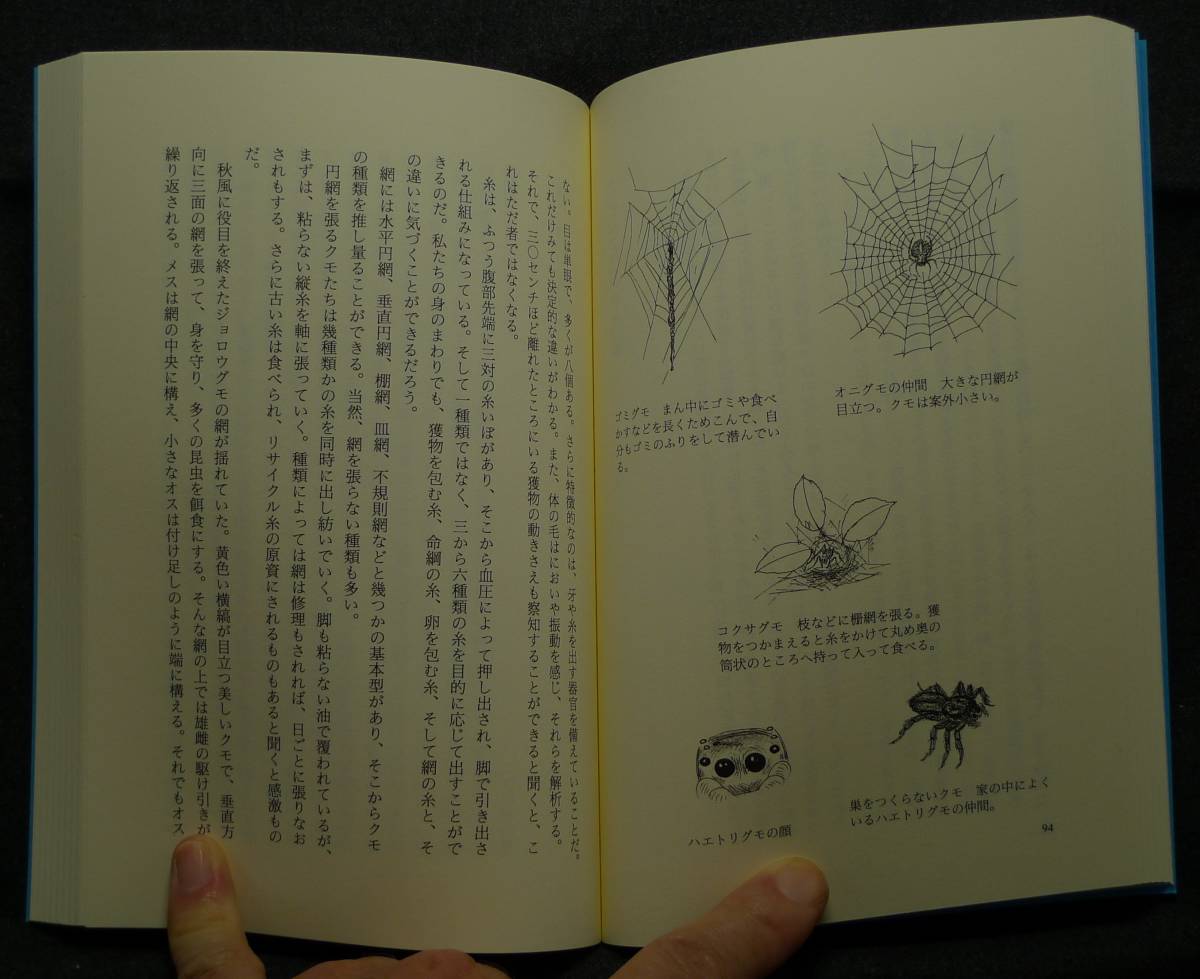 オニグモの仲間　大きな円網が
目立つ。クモは案外小さい。
ゴミグモ　まん中にゴミや食べ
かすなどを長くためこんで、自
分もゴミのふりをして潜んでい
る。
コクサグモ　枝などに棚網を張る。獲
物をつかまえると糸をかけて丸め奥の
筒状のところへ持って入って食べる。
巣をつくらないクモ　家の中によく
いるハエトリグモの仲間。
ハエトリグモの顔
94
ない。目は単眼で、多くが八個ある。さらに特徴的なのは、牙や糸を出す器官を備えていることだ。
これだけみても決定的な違いがわかる。また、体の毛はにおいや振動を感じ、それらを解析する。
それで、三〇センチほど離れたところにいる獲物の動きさえも察知することができると聞くと、こ
れはただ者ではなくなる。
糸は、ふつう腹部先端に三対の糸いぼがあり、そこから血圧によって押し出され、脚で引き出さ
れる仕組みになっている。そして一種類ではなく、三から六種類の糸を目的に応じて出すことがで
きるのだ。私たちの身のまわりでも、獲物を包む糸、命綱の糸、卵を包む糸、そして網の糸と、そ
の違いに気づくことができるだろう。
網には水平円網、垂直円網、棚網、皿網、不規則網などと幾つかの基本型があり、そこからクモ
の種類を推し量ることができる。当然、網を張らない種類も多い。
円網を張るクモたちは幾種類かの糸を同時に出し紡いでいく。脚も粘らない油で覆われているが、
まずは、粘らない縦糸を軸に張っていく。種類によっては網は修理もされれば、日ごとに張りなお
されもする。さらに古い糸は食べられ、リサイクル糸の原資にされるものもあると聞くと感激もの
だ。
秋風に役目を終えたジョロウグモの網が揺れていた。黄色い横縞が目立つ美しいクモで、垂直方
向に三面の網を張って、身を守り、多くの昆虫を餌食にする。そんな網の上では雄雌の駆け引きが
繰り返される。メスは網の中央に構え、小さなオスは付け足しのように端に構える。それでもオス